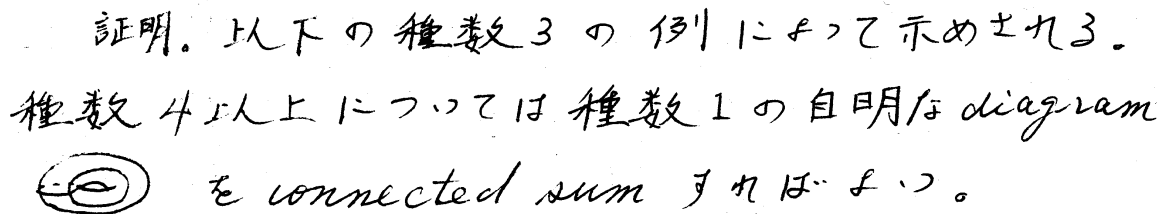 証明。以下の種数3の例によって示めされる。
種数4以上については種数1の自明なdiagram
をconnected sumすればよい。